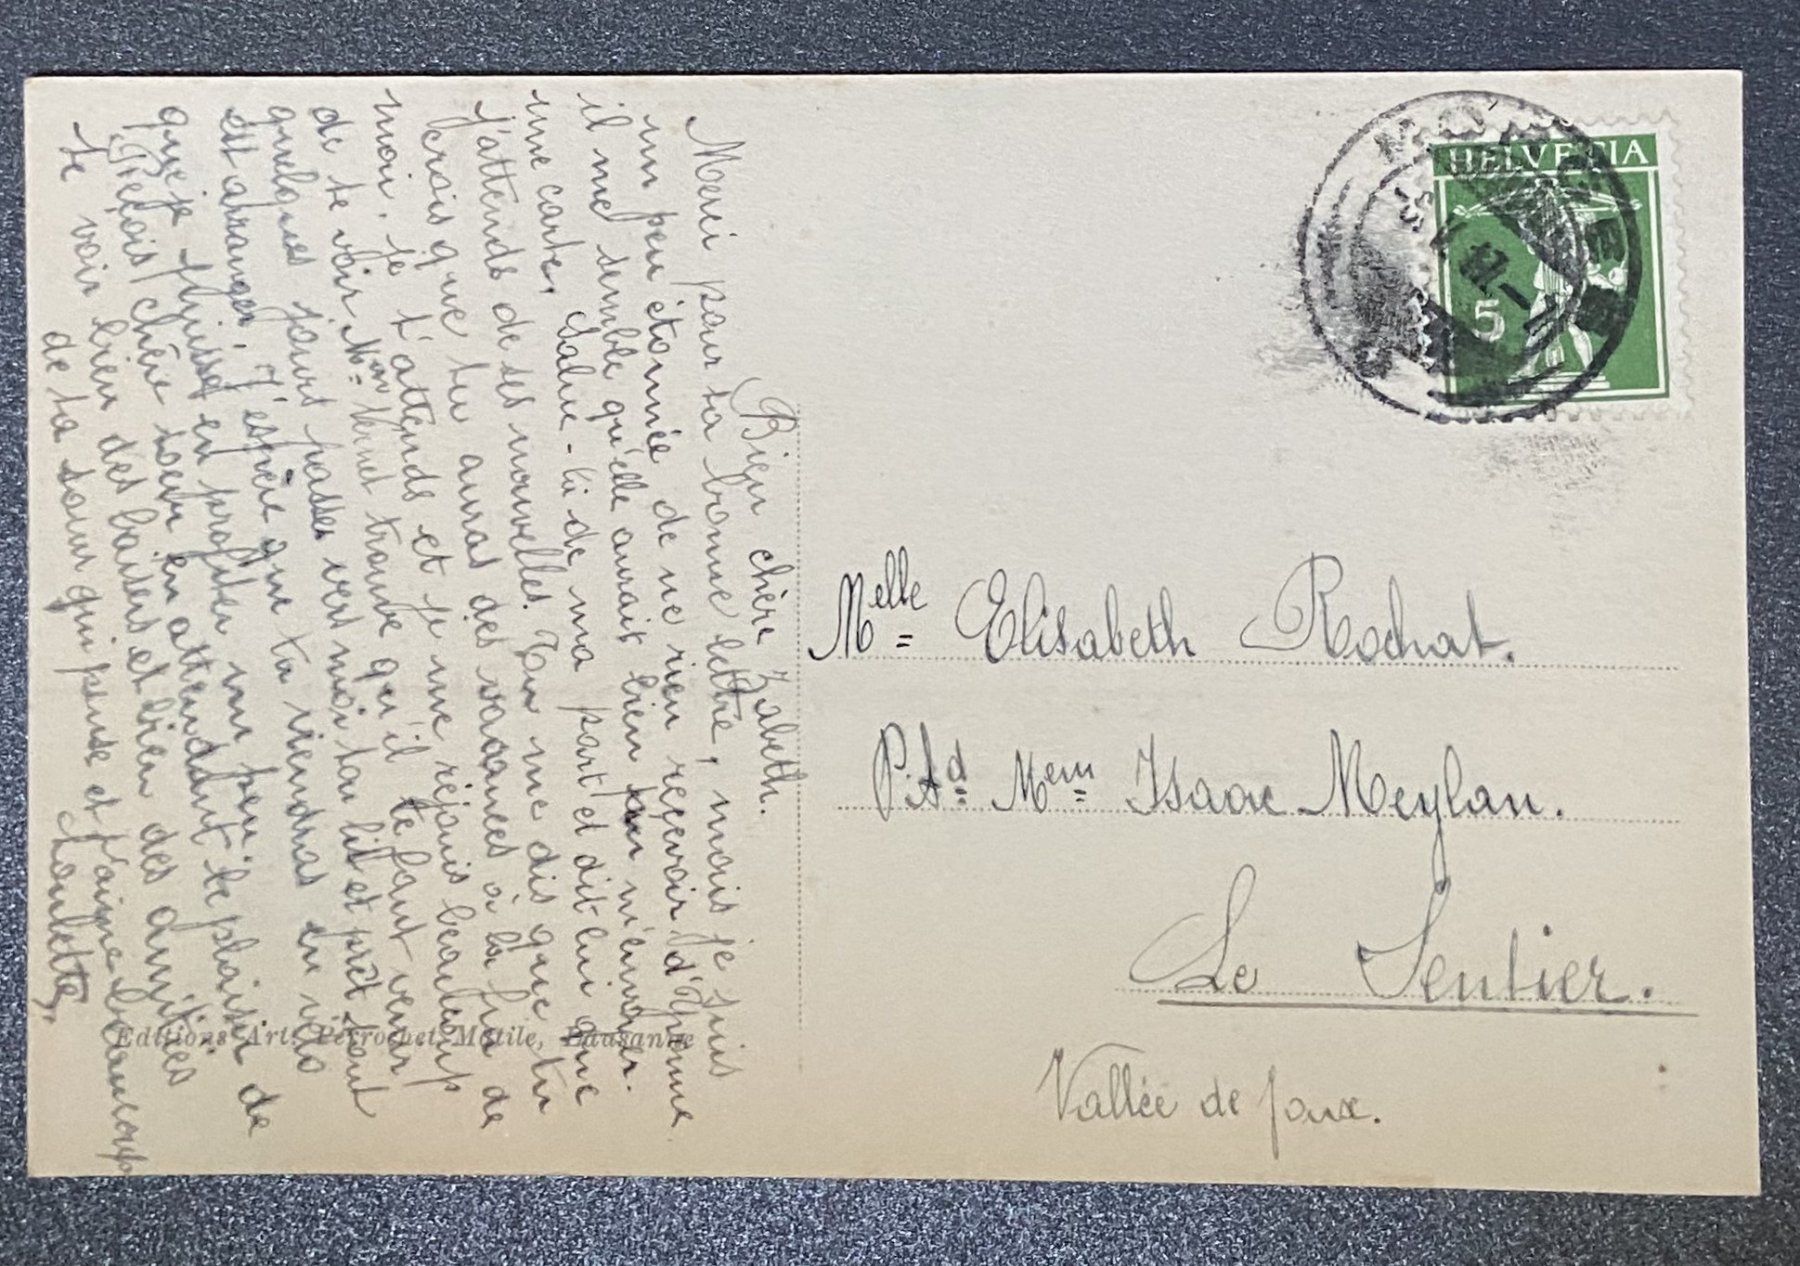 Bien chère Zabeth.
Merci pour ta bonne lettre, mais je suis
un peu étonnée de ne rien reçevoir d'Yvonne
il me semble qu'elle aurait bien pu m'envoyer
une carte, salue-la de ma part et dit lui que
j'attends de ses nouvelles. Tu me dis que tu
crois que tu auras des vacances à la fin de
mois. Je t'attends et je me réjouis beaucoup
de te voir. Mon trouve qu'il te faut venir
quelques jours passer vers moi ton lit est prêt tout
est arrangé. J'espère que tu viendras en
que je puisse en profiter un peu. le plaisir de
Reçois chère soeur en attendant
te voir bien des baisers et bien des amitiés
de ta soeur qui pense et t'aime beaucoup
Loulette.
Editions Art. Perrochet-Matile, Lausanne
HELVETIA
5
Melle Elisabeth Rochat.
P. Ad. Mem Isaac Meylan.
Le Sentier.
Vallée de Joux.